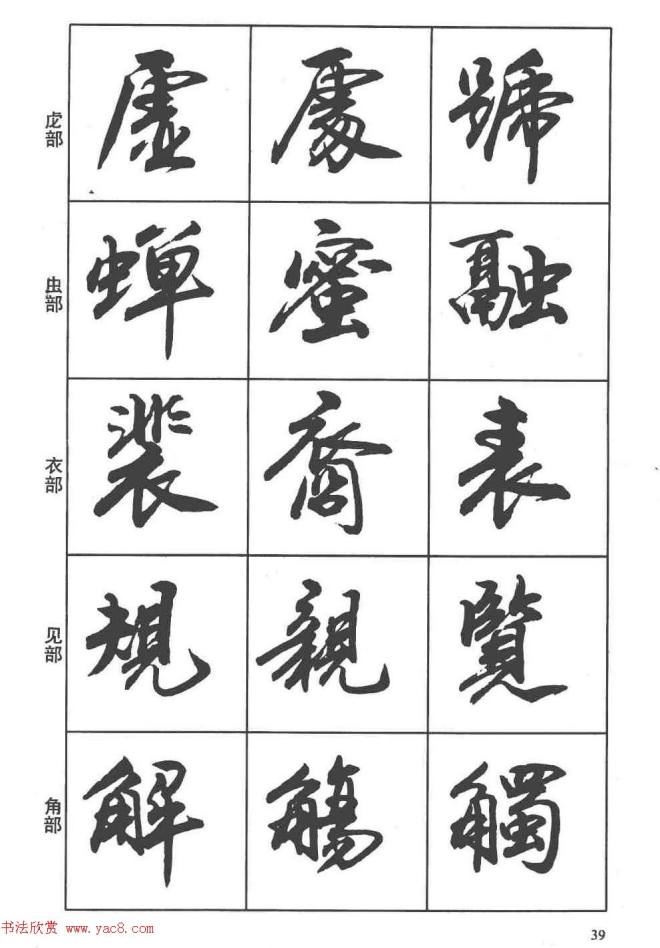 虍部 虛 處 號
虫部 蟬 蜜 融
衣部 裴 裔 表
见部 規 親 覽
角部 解 觴 觸
书法欣赏 www.yac8.com
39